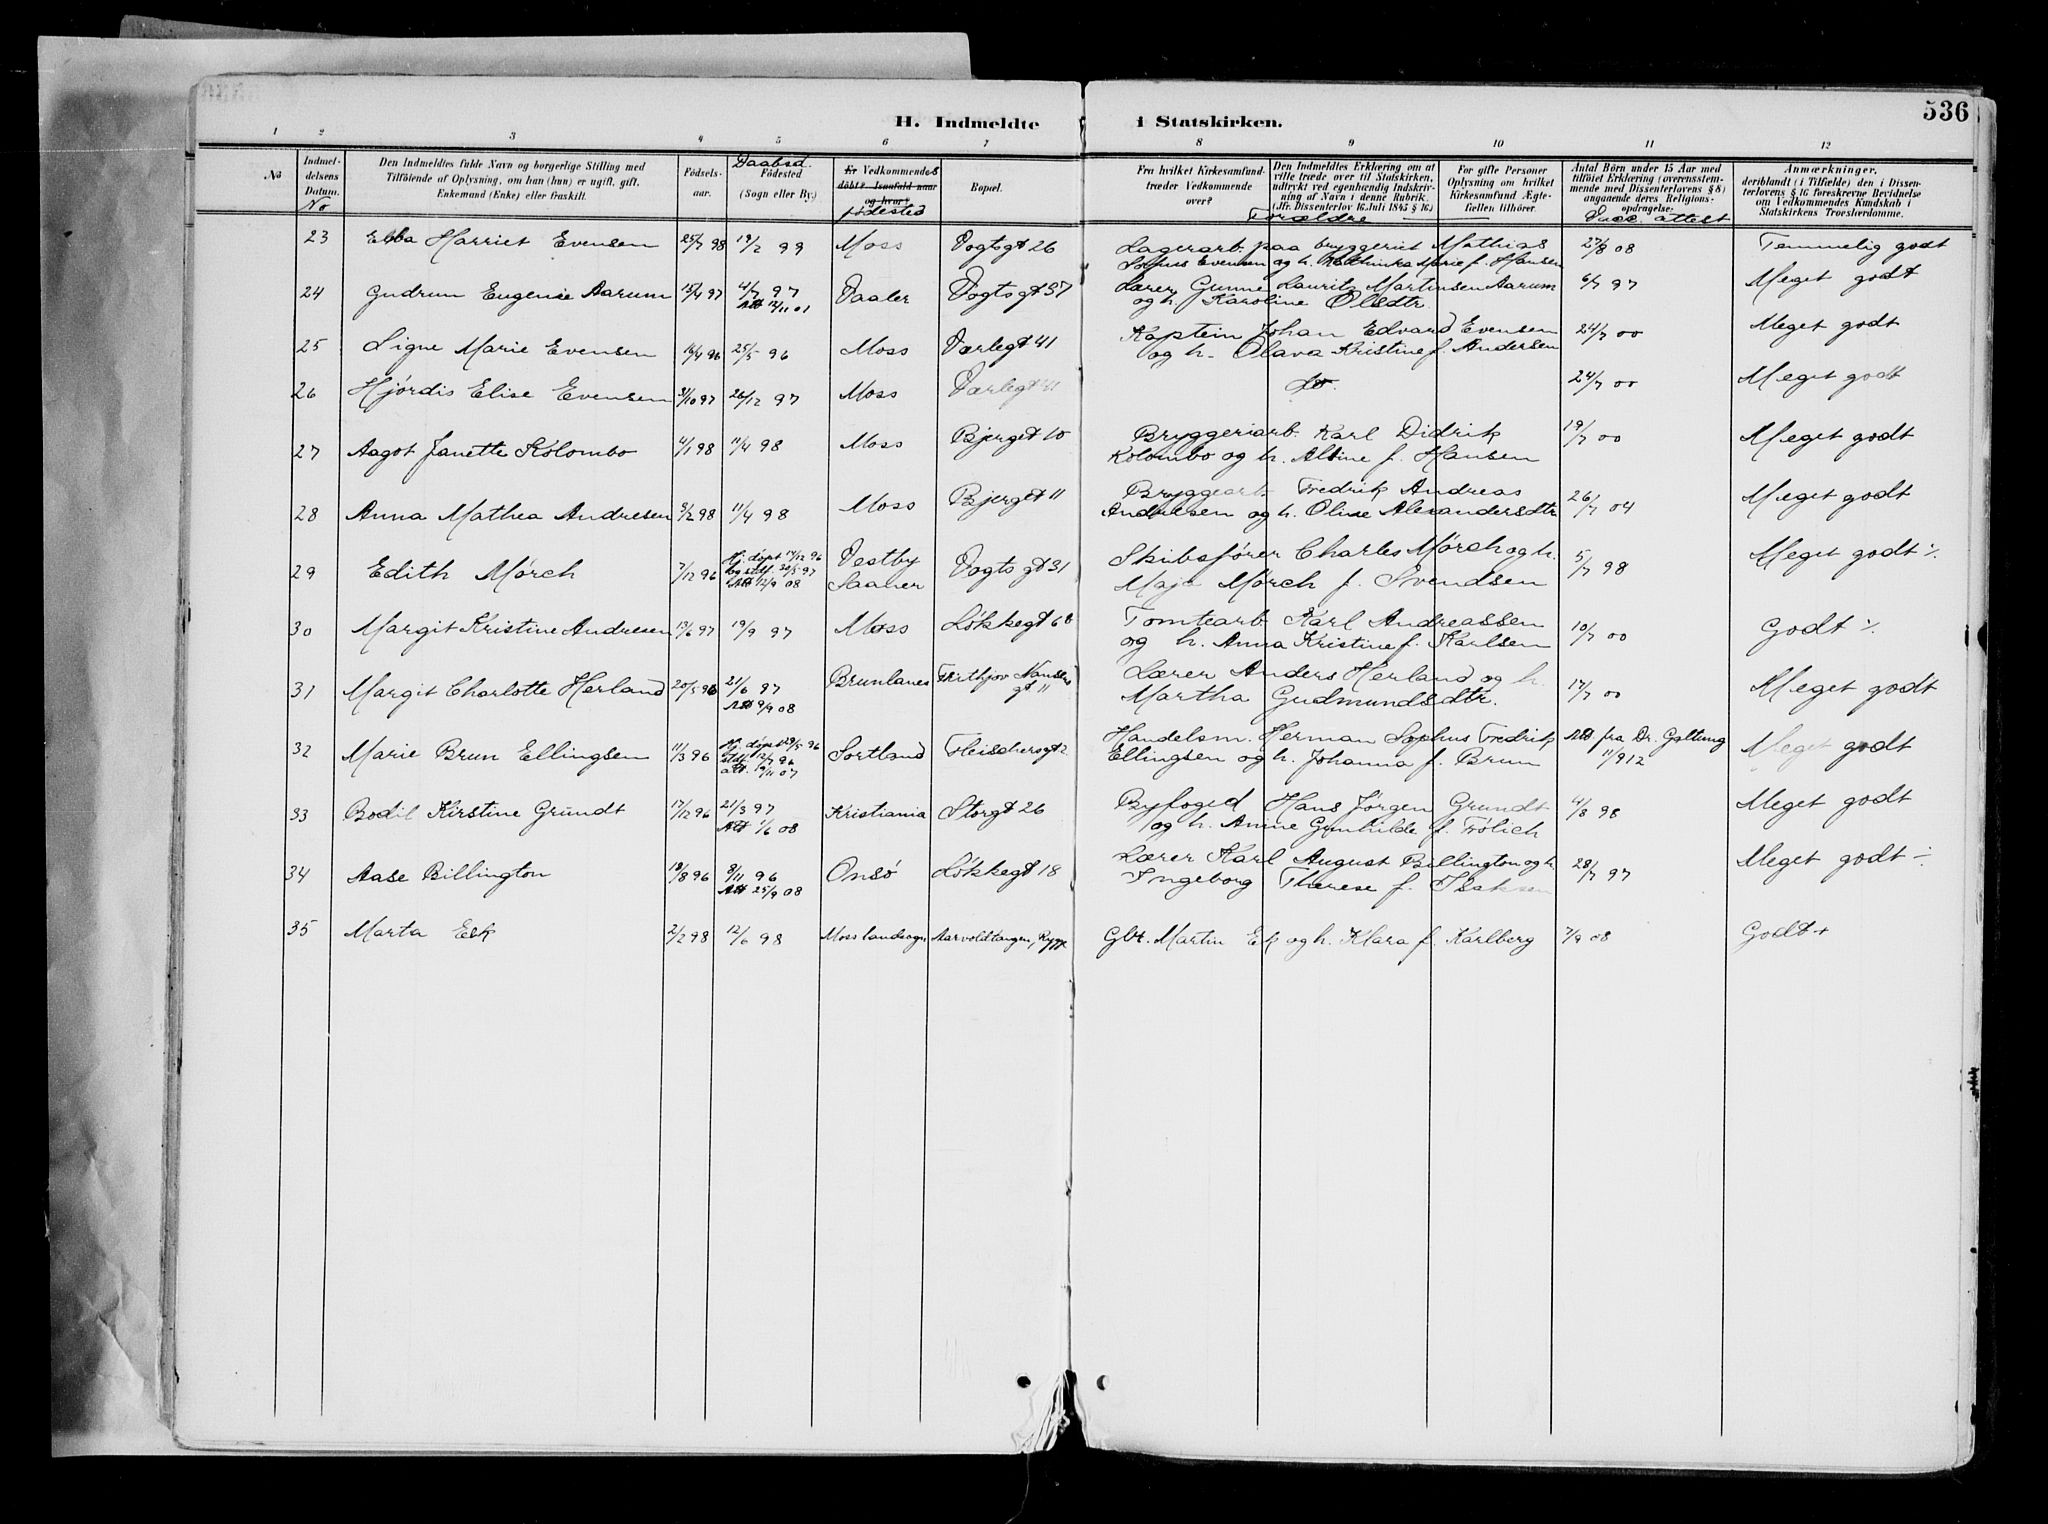 536
H. Indmeldte i Statskirken.
1 2 3 4 5 6 7 8 9 10 11 12
No
Indmeldelsens Datum.
No
Den Indmeldtes fulde Navn og borgerlige Stilling med
Tilföiende af Oplysning, om han (hun) er ugift, gift,
Enkemand (Enke) eller fraskilt.
Fødselsaar.
Daabsd.
Födested
(Sogn eller By.)
Er Vedkommendes
döbt? Isaafald naar
og hvor?
födested
Bopæl.
Fra hvilket Kirkesamfund
træder Vedkommende
over?
Den Indmeldtes Erklæring om at
ville træde over til Statskirken,
udtrykt ved egenhændig Indskrivning
af Navn i denne Rubrik.
(Jfr. Dissenterlov 16 Juli 1845 § 16.)
Forældre
For gifte Personer
Oplysning om hvilket
Kirkesamfund Ægtefællen
tilhörer.
Antal Börn under 15 Aar med
tilföiet Erklæring (overensstemmende
med Dissenterlovens § 8)
angaaende deres Religionsopdragelse.
Vacc. attest
Anmærkninger,
deriblandt (i Tilfælde) den i Dissenterlovens
§ 16 foreskrevne Bevidnelse
om Vedkommendes Kundskab i
Statskirkens Troeslærdomme.
23 Ebba Harriet Evensen 25/7 98 19/2 99 Moss Vogtsgt 26 Lagerarb. paa bryggeriet Mathias 27/8 08 Temmelig godt
Sofus Evensen og h. Kathinka Marie f. Hansen
24 Gudrun Eugenie Aarum 15/4 97 4/7 97 Vaaler Vogtsgt 37 Lærer Gunne Lauritz Martinsen Aarum 6/7 97 Meget godt
Att 12/11 01 og h. Karoline Olsdtr.
25 Signe Marie Evensen 16/4 96 25/5 96 Moss Varlegt 41 Kaptein Johan Edvard Evensen 24/7 00 Meget godt
og h. Olava Kristine f. Andersen
26 Hjördis Elise Evensen 31/10 97 26/12 97 Moss Varlegt 41 do. 24/7 00 Meget godt
27 Aagot Janette Kolombo 4/1 98 11/4 98 Moss Bjerget 10 Bryggeriarb. Karl Didrik 19/7 00 Meget godt
Kolombo og h. Alvine f. Hansen
28 Anna Mathea Andresen 9/2 98 11/4 98 Moss Bjerget 11 Bryggearb. Fredrik Andreas 26/7 04 Meget godt
Andresen og h. Oline Alexandersdtr
29 Edith Mörch 7/12 96 Hj. döpt 17/12 96 Vestby Vogtsgt 31 Skibsfører Charles Mörch og h. 5/7 98 Meget godt ⁒
og stdf. 29/5 97 Saaner Maja Mörch f. Svendsen
Att 12/9 08
30 Margit Kristine Andresen 13/6 97 19/9 97 Moss Lökkegt 68 Tomtearb. Karl Andreassen 10/7 00 Godt ⁒
og h. Anna Kristine f. Karlsen
31 Margit Charlotte Herland 20/5 96 21/6 97 Brunlanes Frithjov Nansens gt 11 Lærer Anders Herland og h. 17/7 00 Meget godt
Att 9/9 08 Martha Gudmundsdtr.
32 Marie Brun Ellingsen 11/3 96 Hj. döpt 29/5 96 Sortland Fleischersgt 2 Handelsm. Herman Sophus Fredrik Att fra Dr. Galtung Meget godt
stdf. 12/7 96 Ellingsen og h. Johanna f. Brun 11/9 12
att. 19/11 07
33 Bodil Kirstine Grundt 17/12 96 21/3 97 Kristiania Storgt 26 Byfoged Hans Jörgen Grundt 4/8 98 Meget godt
Att 1/6 08 og h. Anine Gunhilde f. Frölich
34 Aase Billington 18/8 96 8/11 96 Onsö Lökkegt 18 Lærer Karl August Billington og h. 28/7 97 Meget godt ÷
Att 25/9 08 Ingeborg Therese f. Isaksen
35 Marta Eek 2/2 98 12/6 98 Moss landsogn Aarvoldtangen, Rygge Gbr. Martin Ek og h. Klara f. Karlberg 7/9 08 Godt +